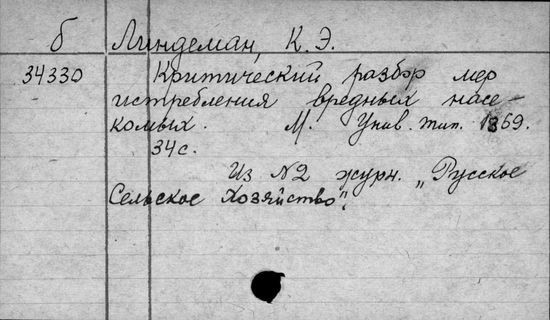 б Линдеман, К. Э.
34330 Критический разбор мер
истребления вредных насе-
комых. М. Унив. тип. 1869.
34 с.
Из №2 журн. „Русское
Сельское Хозяйство".